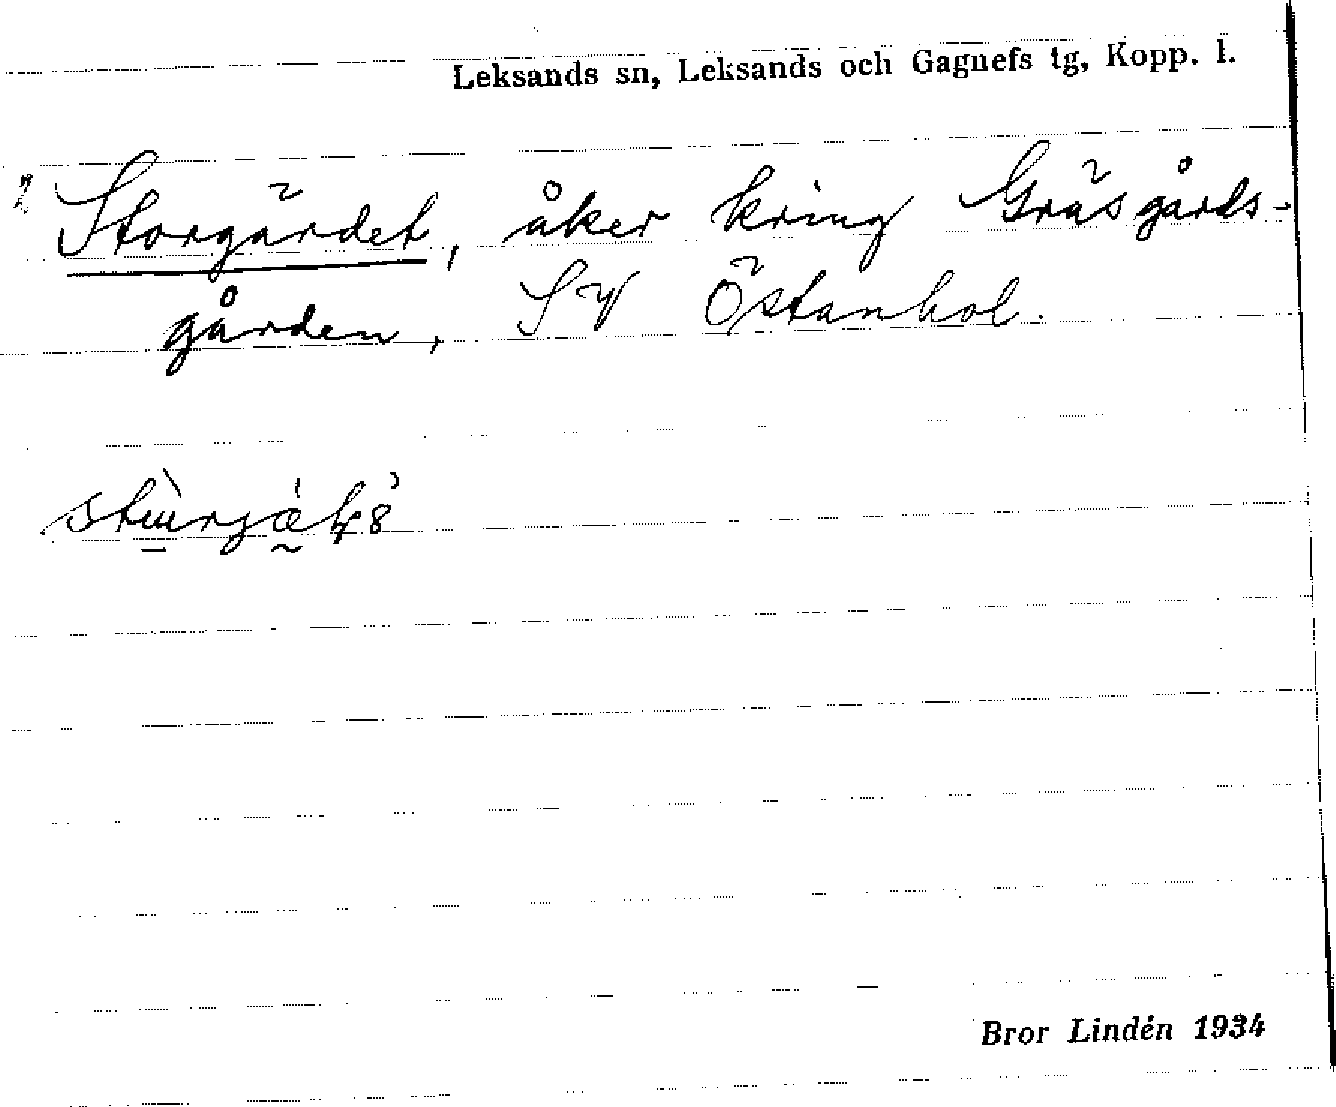 Leksands sn, Leksands och Gagnefs tg, Kopp. l.
Storgärdet, åker kring Gräsgårds-
gården, SV Östanhol.
Bror Lindén 1934